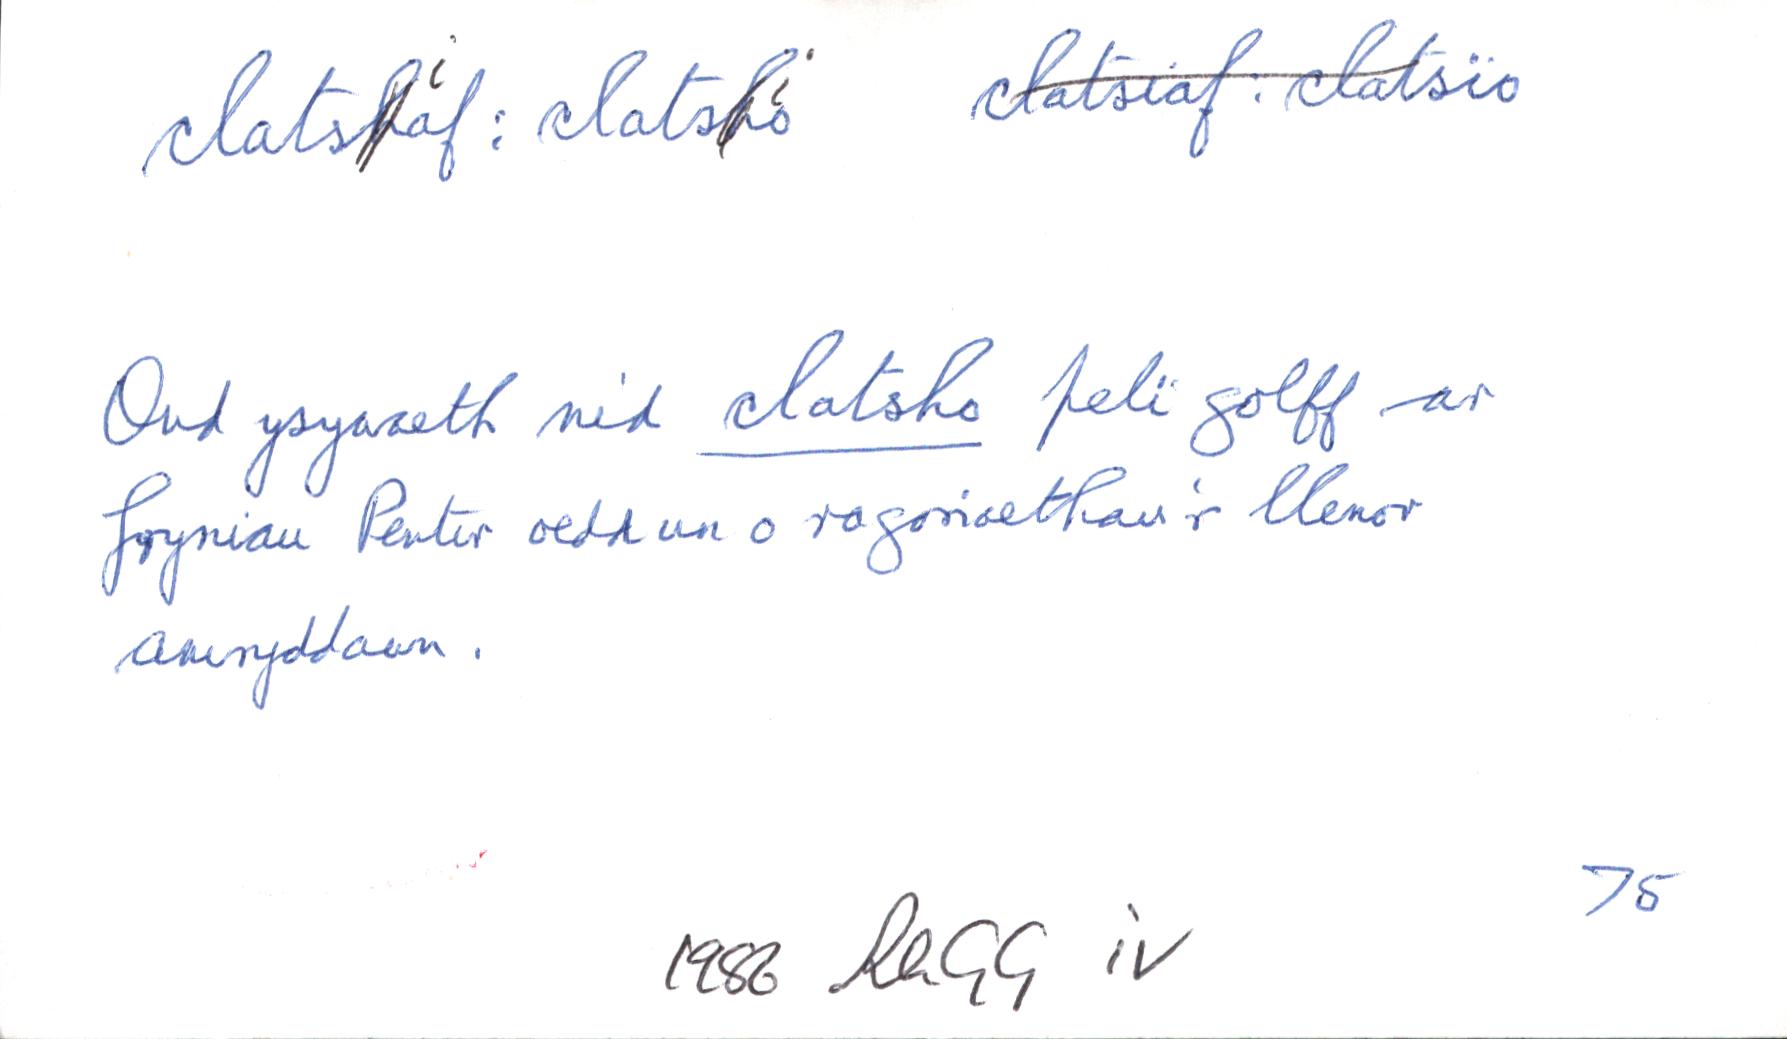 clatsiaf: clatsio clatsiaf: clatsïo
Ond ysywaeth nid clatsho peli golff ar
fryniau Pentir oedd un o ragoriaethau'r llenor
amryddawn.
75
1986 RhGG iv